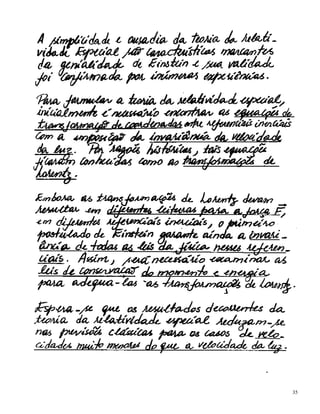 A simplicidade e ousadia da teoria da Relati-
vidade Especial são características marcantes
da genialidade de Einstein e sua validade
foi confirmada por inúmeras experiências.
Para formular a teoria da relatividade especial,
inicialmente é necessário encontrar as equações de
transformação de coordenadas entre referenciais inerciais
com a imposição da invariância da velocidade
da luz. Por razões históricas, tais equações
ficaram conhecidas como as transformações de
Lorentz.
Embora as transformações de Lorentz devam
resultar em diferentes leituras para a força F,
em diferentes referenciais inerciais, o primeiro
postulado de Einstein garante ainda a invari-
ância de todas as leis da física nesses referen-
ciais. Assim, será necessário examinar as
leis de conservação do momento e energia
para adequá-las às transformações de Lorentz.
Espera-se que os resultados decorrentes da
teoria da relatividade especial reduzam-se
nas previsões clássicas para os casos de velo-
cidades muito menores do que a velocidade da luz.
15